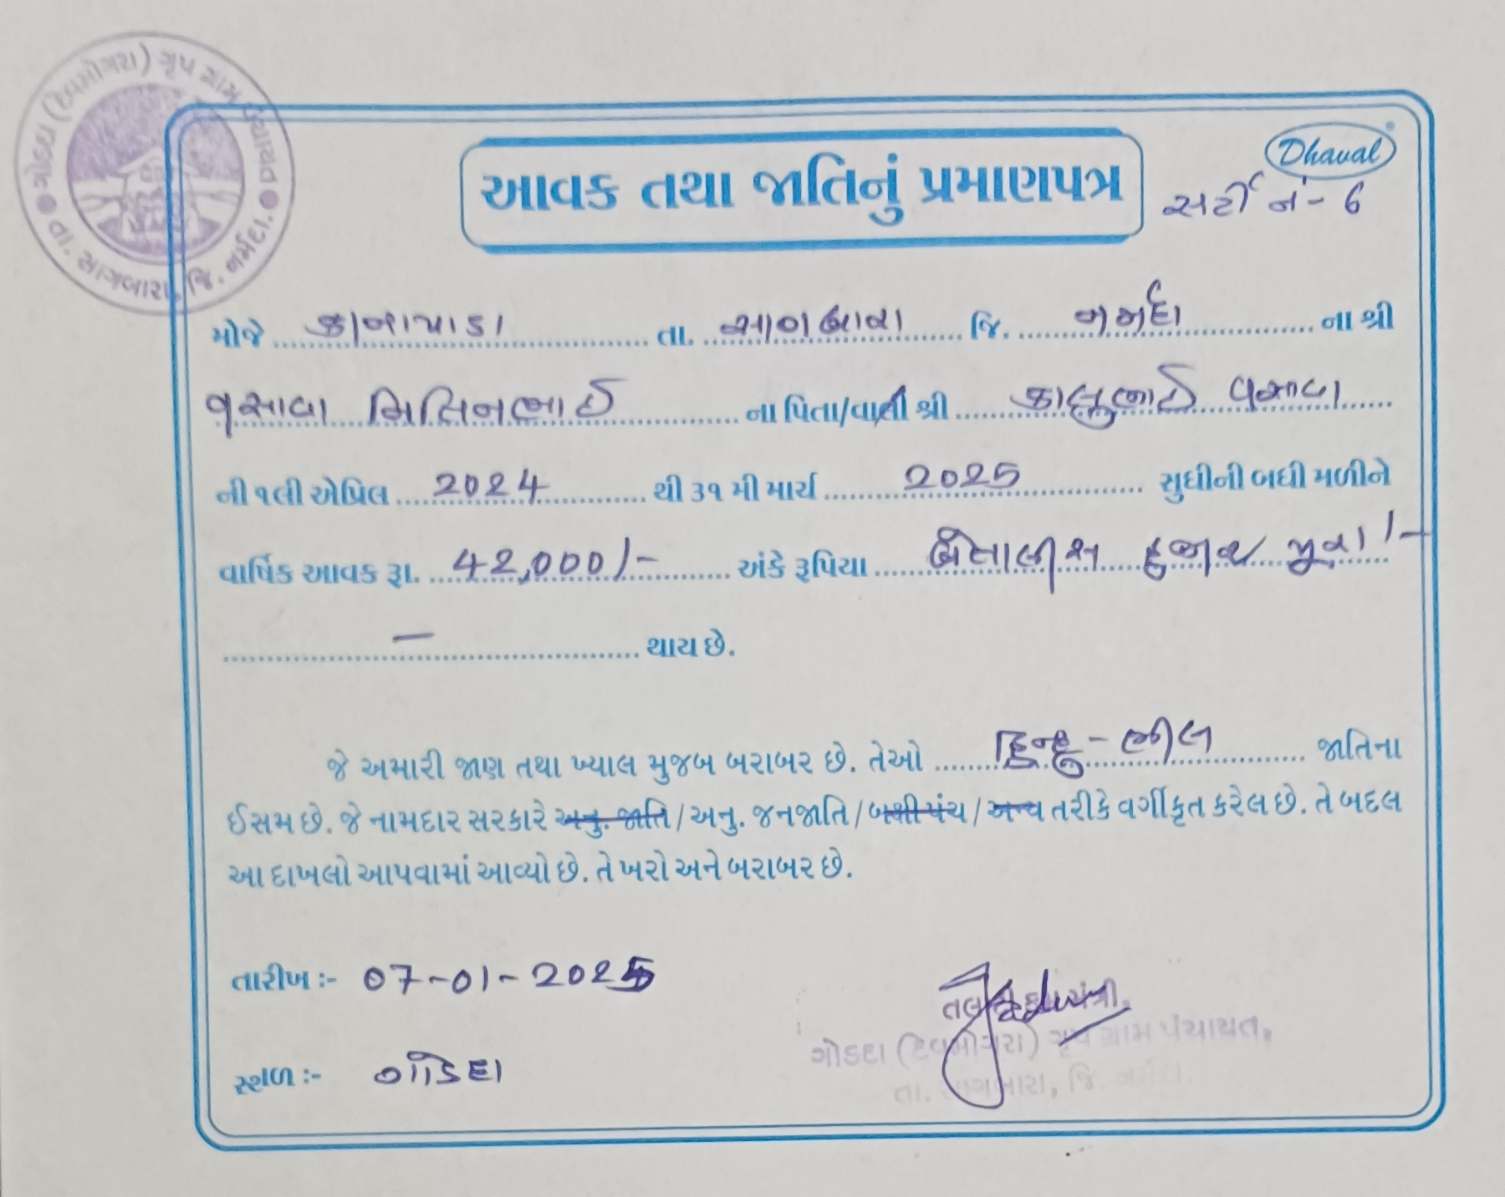 ગોડદા (દેવમોગરા) ગૃપ ગ્રામ પંચાયત
તા. સાગબારા, જિ. નર્મદા.
Dhaval
આવક તથા જાતિનું પ્રમાણપત્ર
સર્ટી નં - 6
મોજે તા. સાગબારા જિ. નર્મદા ના શ્રી
વસાવા મિતિનભાઈ ના પિતા/વાલી શ્રી કાલુભાઈ વસાવા
ની ૧લી એપ્રિલ 2024 થી ૩૧ મી માર્ચ 2025 સુધીની બધી મળીને
વાર્ષિક આવક રૂા. 42,000/- અંકે રૂપિયા બેતાલીસ હજાર પુરા/-
— થાય છે.
જે અમારી જાણ તથા ખ્યાલ મુજબ બરાબર છે. તેઓ હિન્દુ - ભીલ જાતિના
ઈસમ છે. જે નામદાર સરકારે અનુ. જાતિ/અનુ. જનજાતિ/બક્ષીપંચ/અન્ય તરીકે વર્ગીકૃત કરેલ છે. તે બદલ
આ દાખલો આપવામાં આવ્યો છે. તે ખરો અને બરાબર છે.
તારીખ :- 07-01-2025
તલાટી કમ મંત્રી,
ગોડદા (દેવમોગરા) ગૃપ ગ્રામ પંચાયત,
તા. સાગબારા, જિ. નર્મદા.
સ્થળ :- ગોડદા